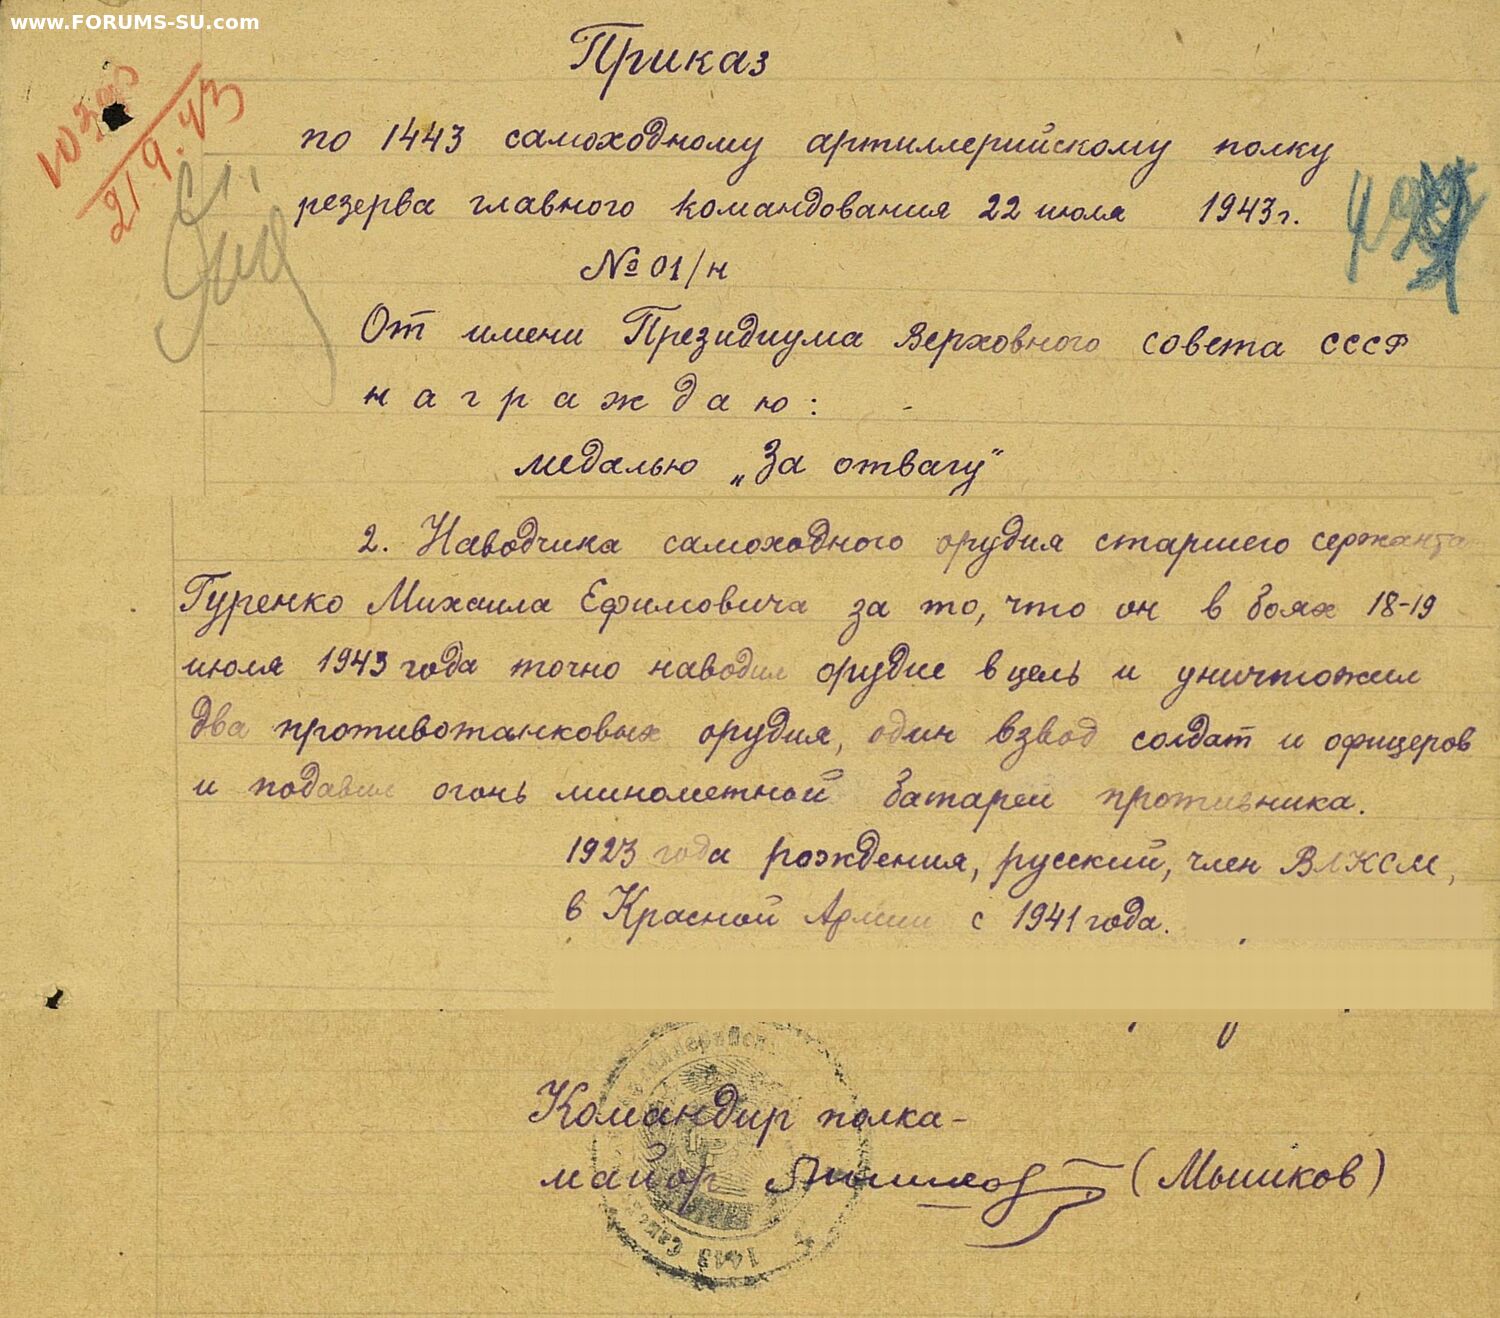 www.FORUMS-SU.com
Приказ
по 1443 самоходному артиллерийскому полку
резерва главного командования 22 июля 1943г.
№ 01/н
От имени Президиума Верховного совета СССР
награждаю:
медалью „За отвагу"
2. Наводчика самоходного орудия старшего сержанта
Гуренко Михаила Ефимовича за то, что он в боях 18-19
июля 1943 года точно наводил орудие в цель и уничтожил
два противотанковых орудия, один взвод солдат и офицеров
и подавил огонь минометной батареи противника.
1923 года рождения, русский, член ВЛКСМ,
в Красной Армии с 1941 года.
Командир полка-
майор (Мышков)
21.9.43
1443